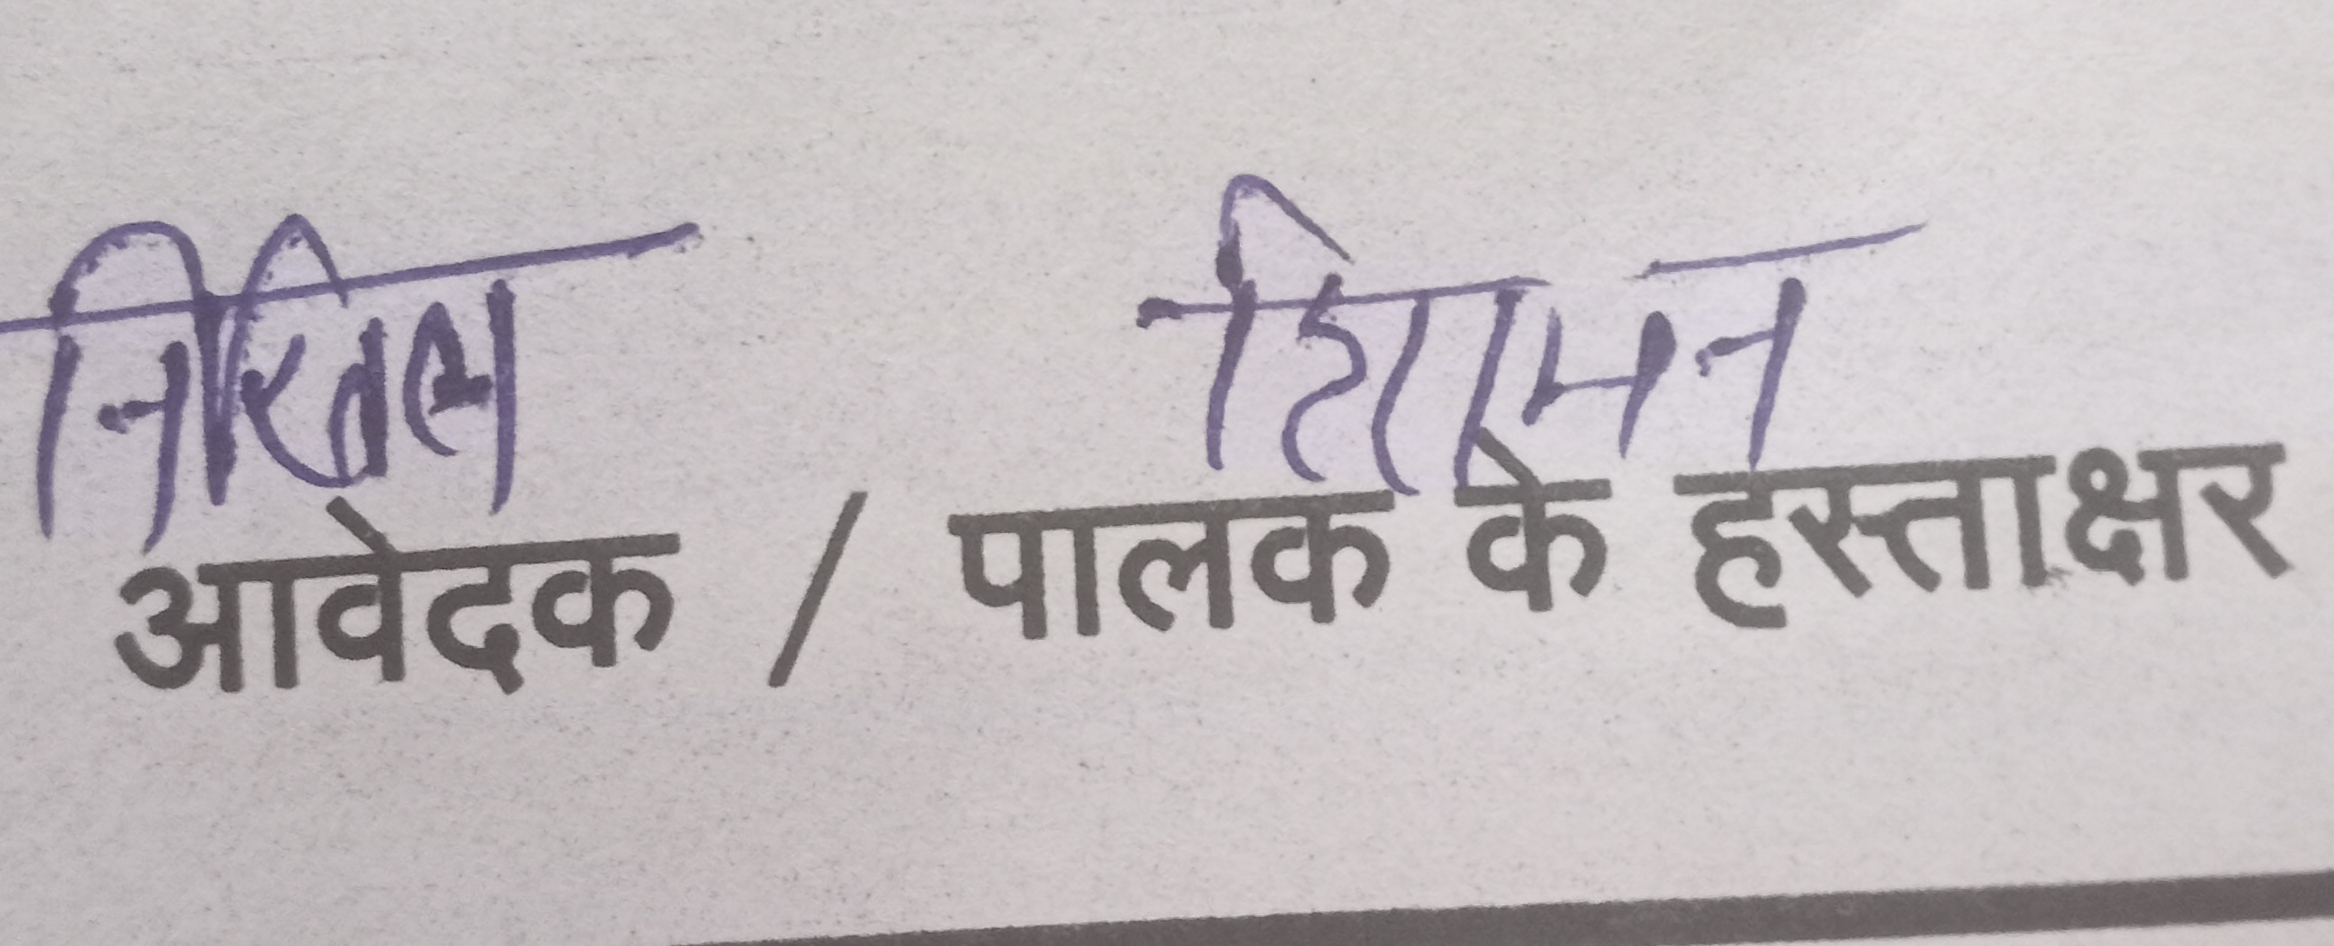 निखिल
आवेदक / पालक के हस्ताक्षर